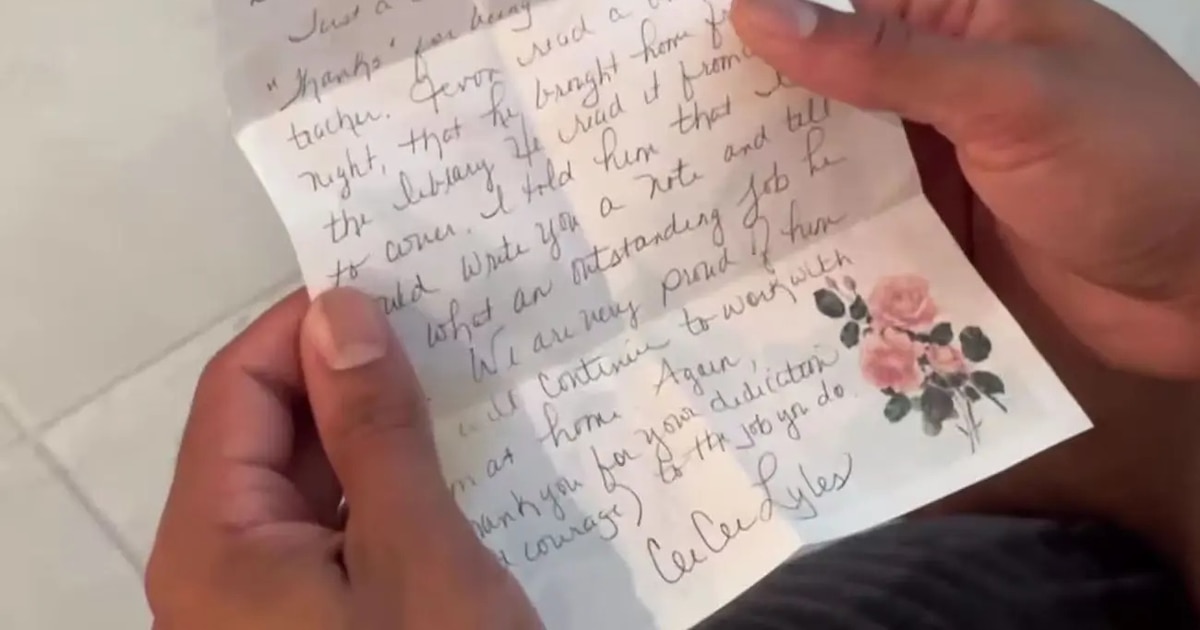 Just a
"Thanks" for being
teacher. Jevon read a
night, that he brought home
the library. He read it from
to cover. I told him that I
write you a note and tell
what an outstanding job he
We are very proud of him
continue to work with
at home. Again,
thank you for your dedication
courage) to the job you do.
CeeCee Lyles